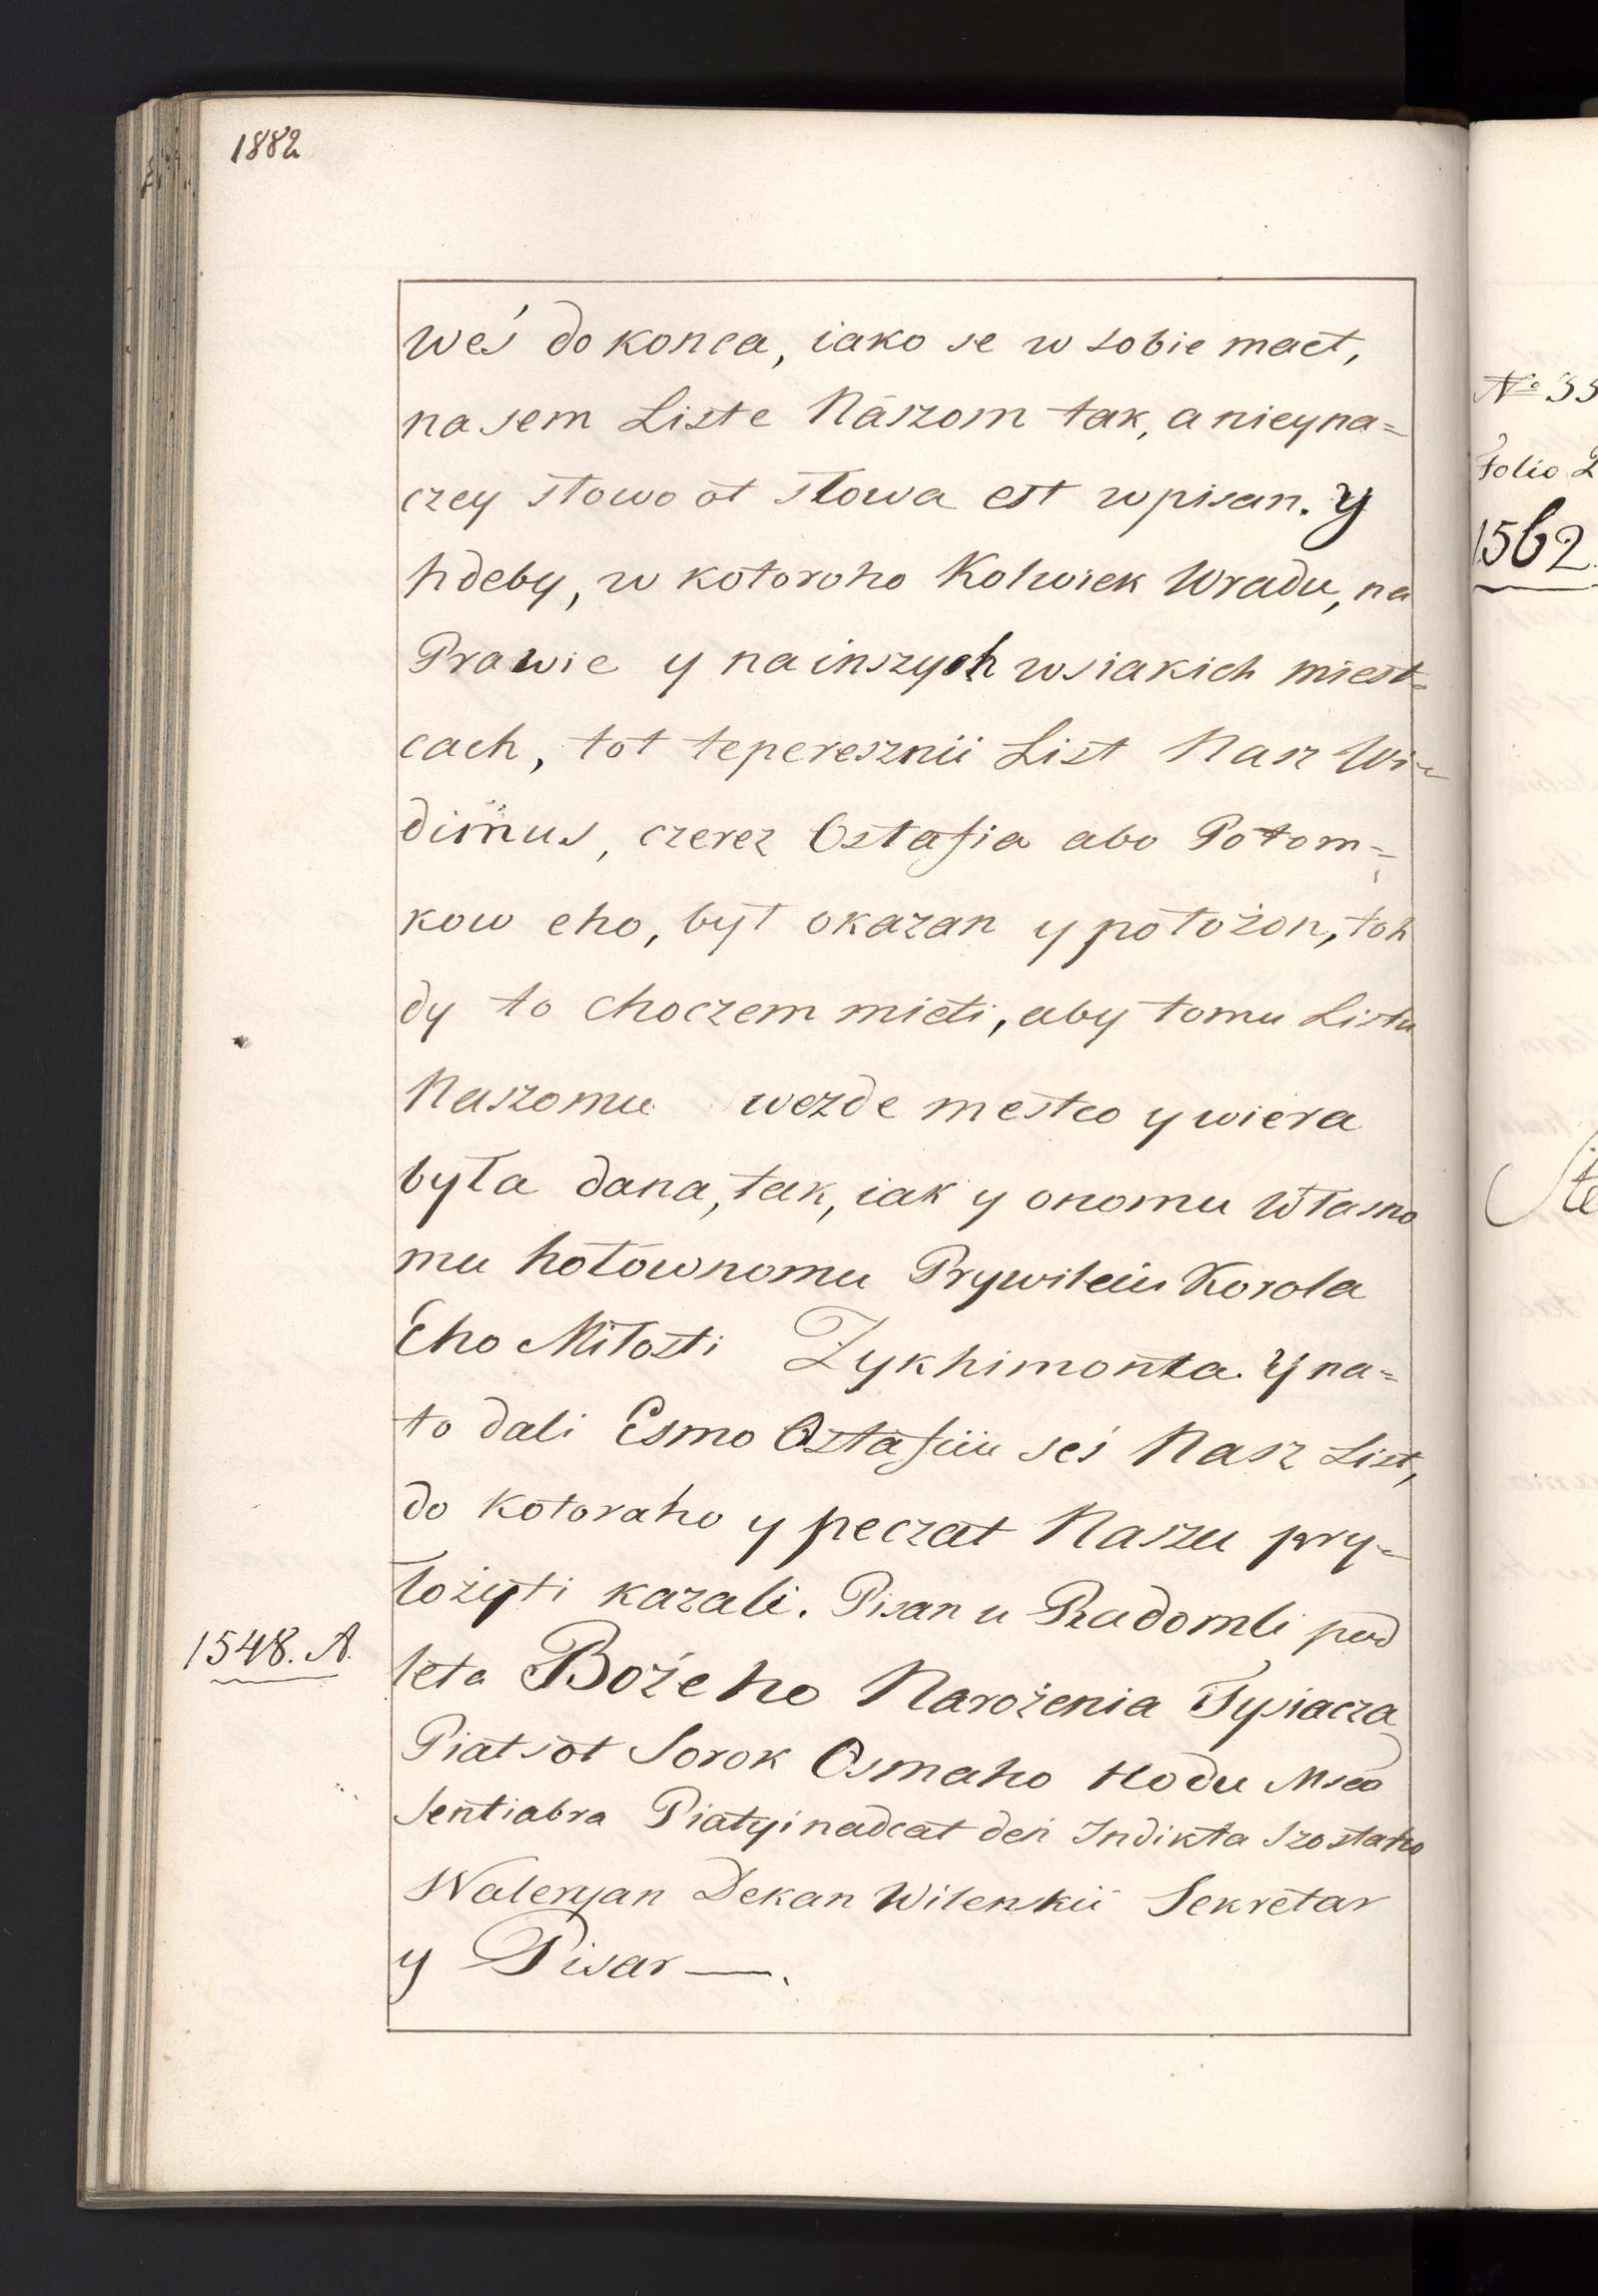 1882
weś do konca, iako se w sobie maet,
na sem Liste Naszom tak, a nieyna=
czey słowo ot słowa est wpisan. Y
hdeby, w kotoroho Kolwiek Wradu, na
Prawie y na inszych wsiakich miest=
cach, tot teperesznii List Nasz Wi=
dimus, czerez Ostafia abo Potom=
kow eho, był okazan y położon, toh
dy to choczem mieti, aby tomu Listu
Naszomu wezde mestco y wiera
była dana, tak, iak y onomu Własno
mu hołownomu Prywileiu Korola
Eho Miłosti Zykhimonta. Y na=
to dali Esmo Ostafiiu seś Nasz List,
do kotoraho y peczat Naszu pry=
łożyti kazali. Pisan u Radomli pod
1548. A.
leta Bożeho Narożenia Tysiacza
Piatsot Sorok Osmaho Hodu Msca
Sentiabra Piatyinadcat deń Indikta Szostaho
Waleryan Dekan Wilenkii Sekretar
y Pisar —.
No 35
Folio 2
1562.
Ste